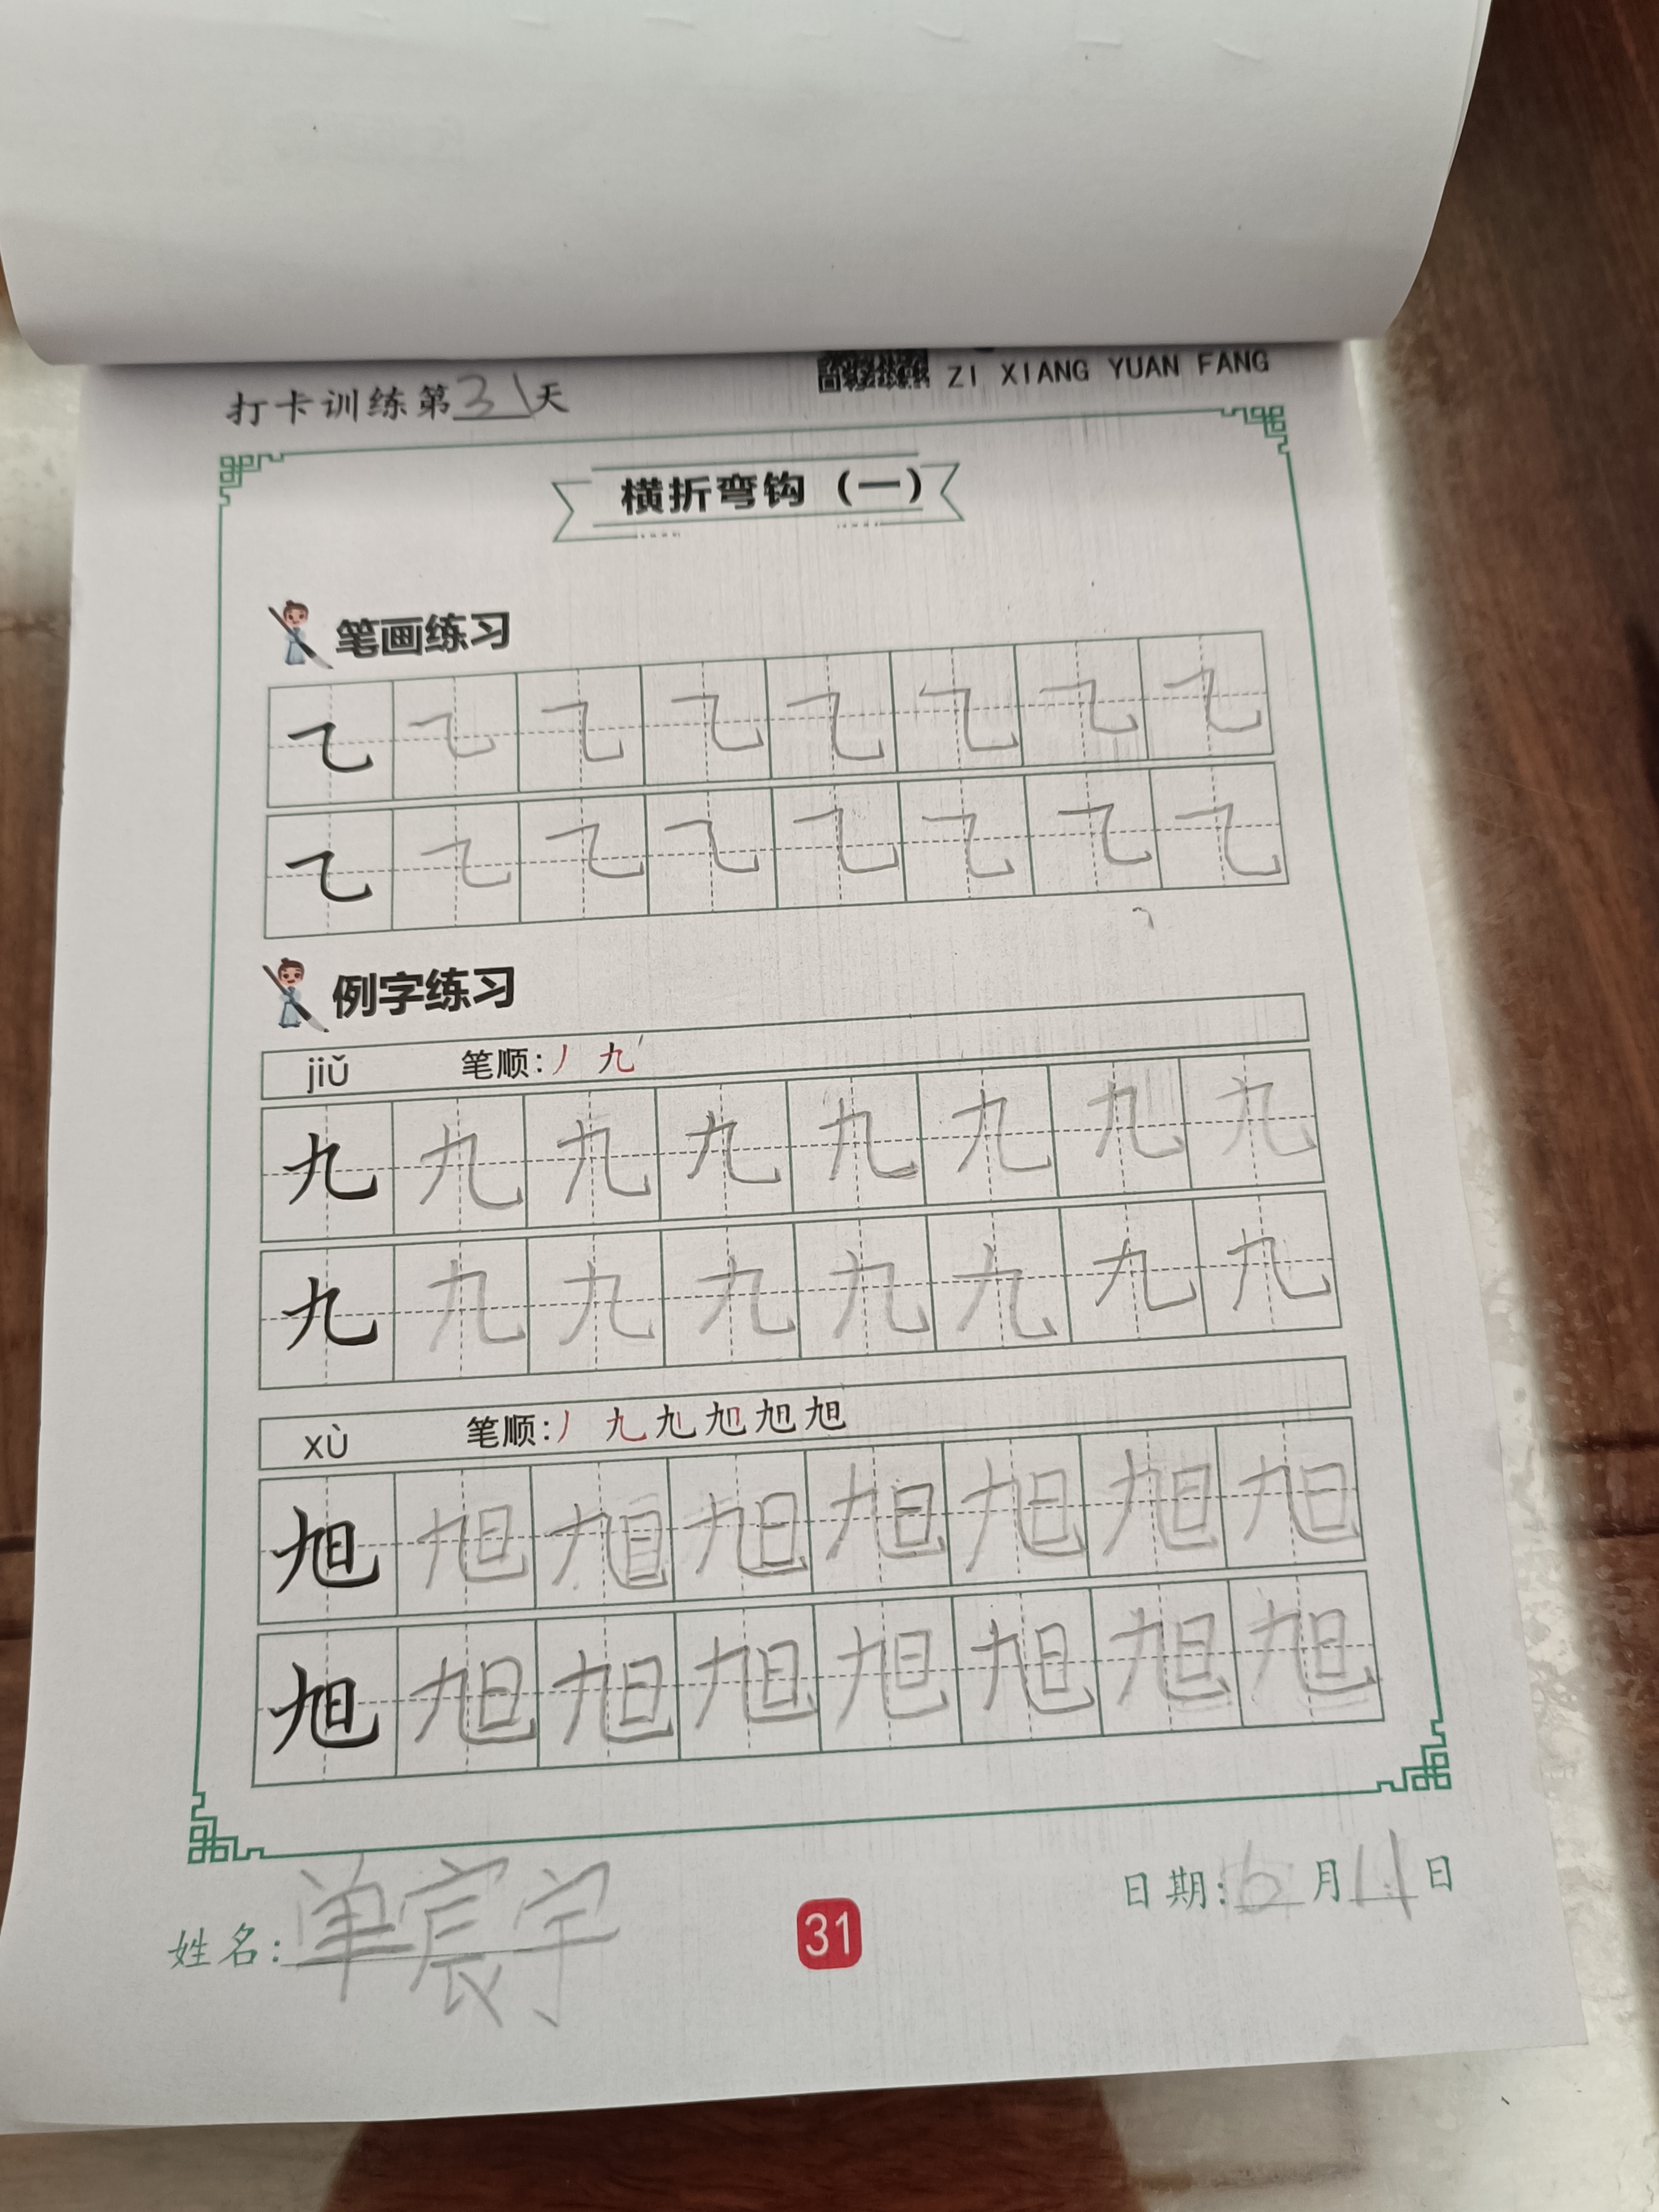 ZI XIANG YUAN FANG
打卡训练第31天
横折弯钩（一）
笔画练习
㇈ ㇈ ㇈ ㇈ ㇈ ㇈ ㇈ ㇈
㇈ ㇈ ㇈ ㇈ ㇈ ㇈ ㇈ ㇈
例字练习
jiǔ 笔顺:丿 九
九 九 九 九 九 九 九 九
九 九 九 九 九 九 九 九
xù 笔顺:丿 九 旭 旭 旭
旭 旭 旭 旭 旭 旭 旭 旭
旭 旭 旭 旭 旭 旭 旭 旭
姓名:单宸宇
31
日期:6月11日